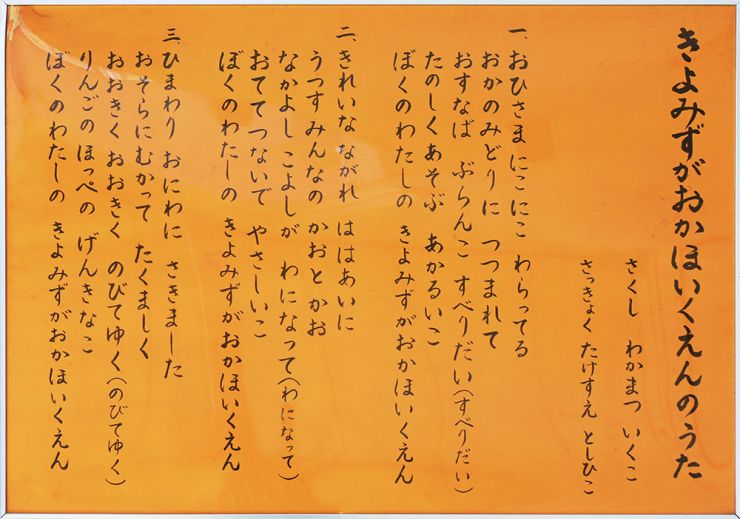 きよみずがおかほいくえんのうた
さくし わかまつ いくこ
さっきょく たけすえ としひこ
一、おひさま にこにこ わらってる
おかのみどりに つつまれて
おすなば ぶらんこ すべりだい(すべりだい)
たのしくあそぶ あかるいこ
ぼくのわたしの きよみずがおかほいくえん
二、きれいな ながれ ははあいに
うつすみんなの かおとかお
なかよし こよしが わになって(わになって)
おててつないで やさしいこ
ぼくのわたしの きよみずがおかほいくえん
三、ひまわり おにわに さきました
おそらにむかって たくましく
おおきく おおきく のびてゆく(のびてゆく)
りんごのほっぺの げんきなこ
ぼくのわたしの きよみずがおかほいくえん